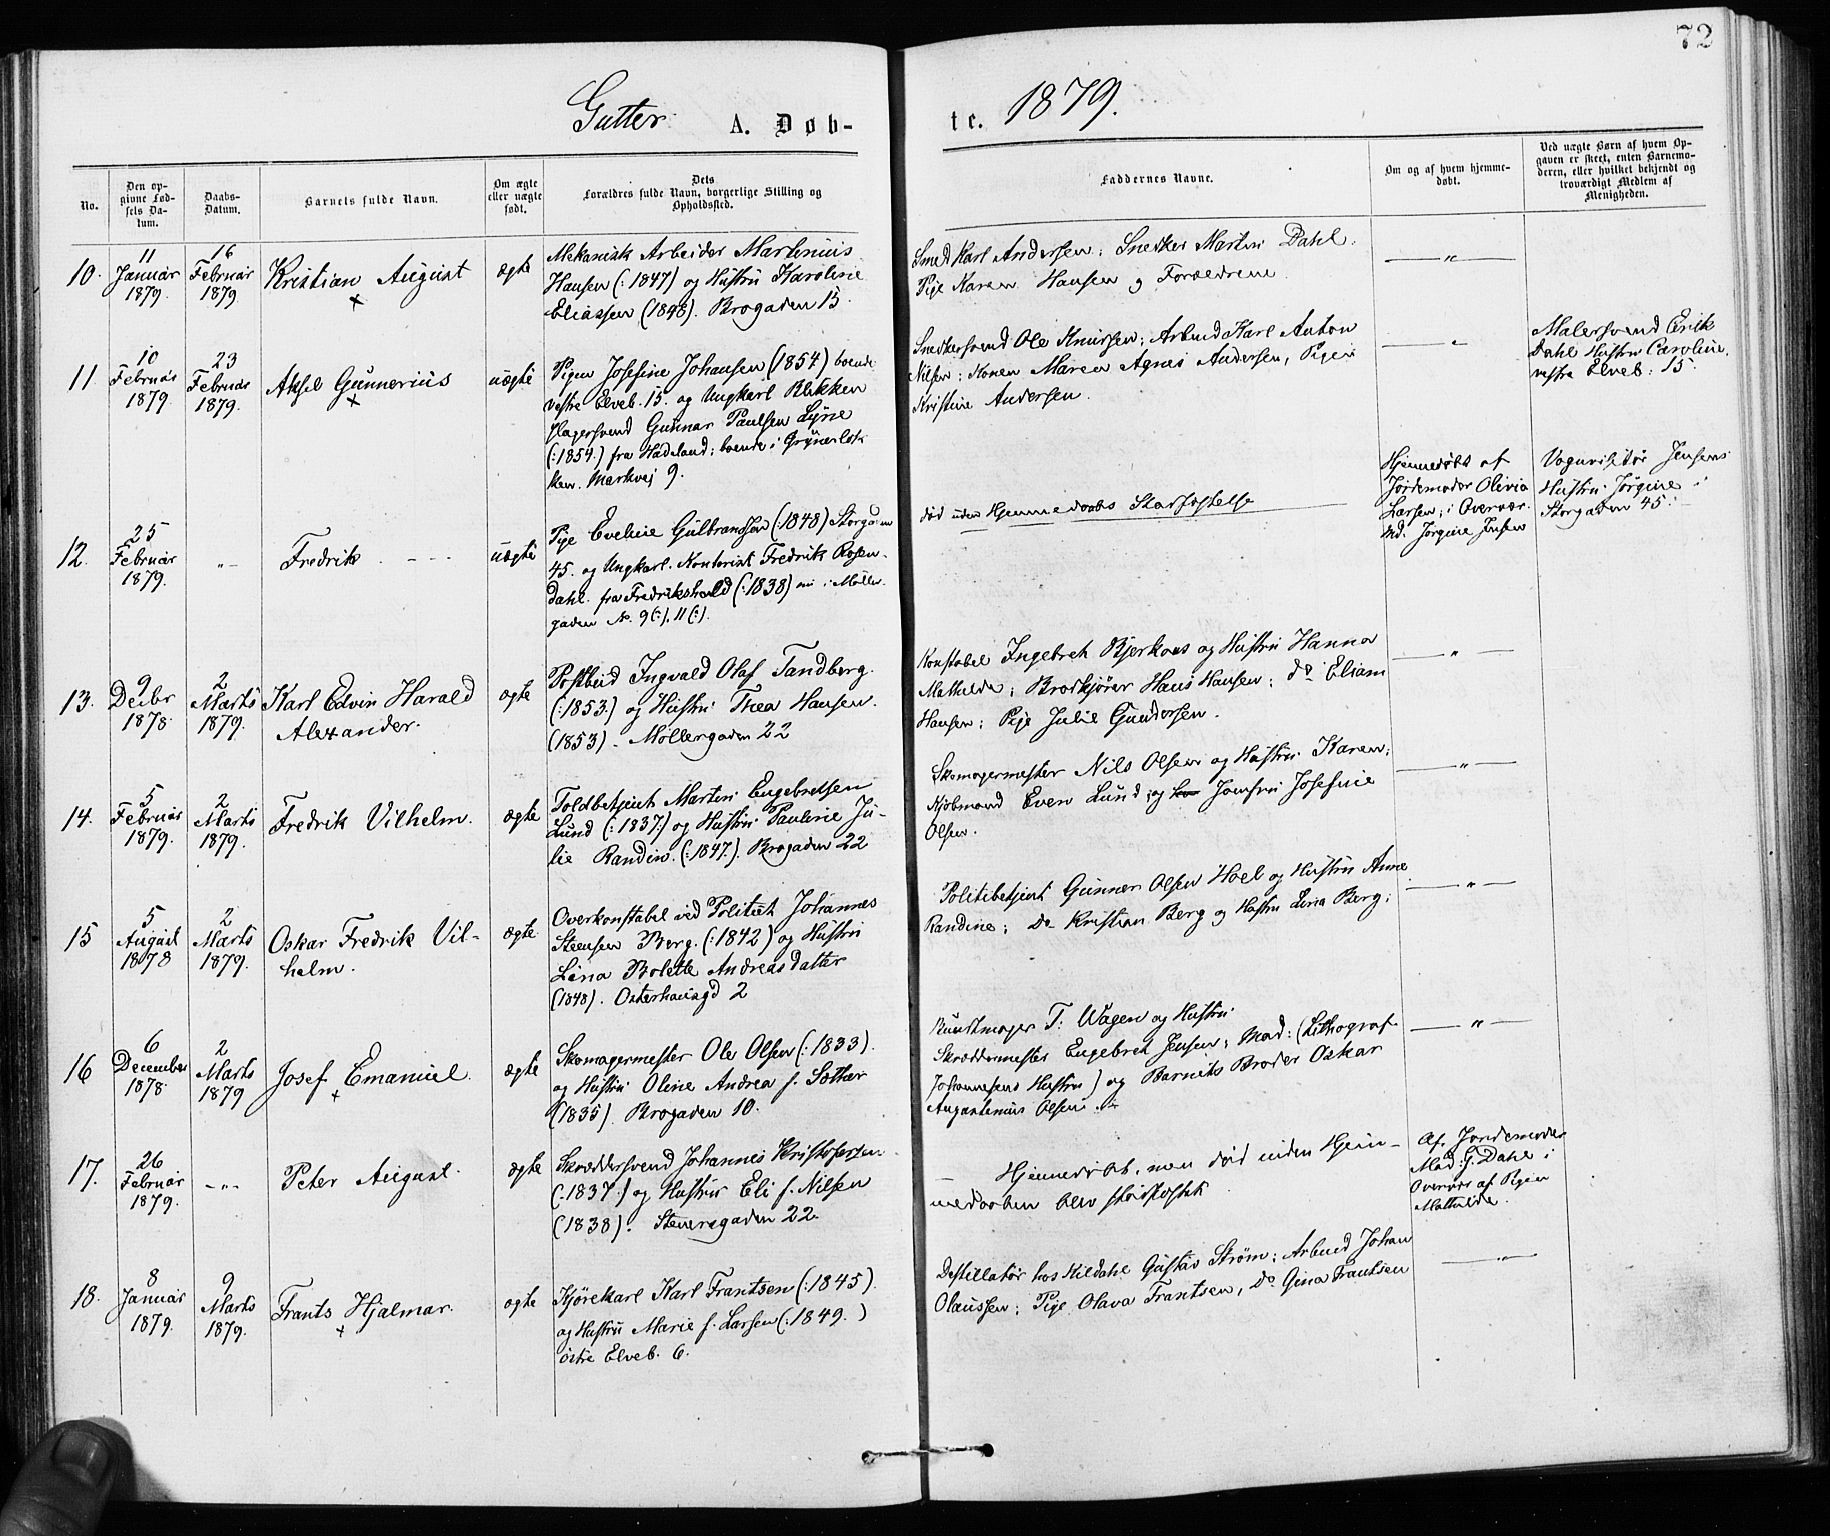 72
Gutter. A. Døb-
te. 1879.
No.
Den op-
givne Fød-
sels Da-
tum.
Daabs-
Datum.
Barnets fulde Navn.
Om ægte
eller uægte
født.
Dets
Forældres fulde Navn, borgerlige Stilling og
Opholdssted.
Faddernes Navne.
Om og af hvem hjemme-
døbt.
Ved uægte Børn af hvem Op-
gaven er skeet, enten Barnemo-
deren, eller hvilket bekjendt og
troværdigt Medlem af
Menigheden.
10.
11
Januar
1879.
16
Februar
1879.
Kristian August
×
ægte
Mekanisk Arbeider Martenius
Hansen (: 1847) og Hustru Karoline
Eliassen (1848). Brogaden 15.
Smed Karl Andersen; Snedker Martin Dahl.
Pige Karen Hansen og Forældrene.
— " —
11
10
Februar
1879.
23
Februar
1879.
Aksel Gunnerius
×
uægte
Pigen Josefine Johansen (1854) boende
vestre Elveb. 15. og Ungkarl Blikken
slagersvend Gunnar Paulsen Lyne
(: 1854.) fra Hadeland; boende i Grünerløk
ken. Markvej 9.
Snedkersvend Ole Knutsen; Arbmd Karl Anton
Nilsen; Konen Maren Agnes Andersen, Pigen
Kristine Andersen.
— " —
Malersvend Erik
Dahl Hustru Caroline,
vestre Elveb: 15.
12.
25
Februar
1879.
" —
Fredrik - - -
uægte
Pige Eveline Gulbranssen (: 1848) Storgaden
45. og Ungkarl. Kontorist Fredrik Rosen-
dahl. fra Fredrikshald (: 1838) nu i Møller
gaden No. 9 (:), 11 (:).
død uden Hjemmedaabs Stadfæstelse
Hjemmedøbt af
Jordemoder Olivia
Larsen; i Overvær.
Md. Jørgine Jensen
Vognvisitør Jensens
Hustru Jørgine i
Storgaden 45.
13.
9
Decbr
1878.
2
Marts
1879.
Karl Edvin Harald
Alexander.
ægte
Postbud Ingvald Olaf Tandberg.
(: 1853.) og Hustru Thea Hansen.
(1853). Møllergaden 22
Konstabel Ingebret Bjerkaas og Hustru Hanna
Mathilde; Brødkjører Hans Hansen; do Eliam
Hansen; Pige Julie Gundersen.
— " —
14.
5
Februar
1879.
2
Marts
1879.
Fredrik Vilhelm.
ægte
Toldbetjent Martin Engebretsen
Lund (: 1837.) og Hustru Pauline Ju-
lie Randin. (: 1847.). Brogaden 22
Skomagermester Nils Olsen og Hustru Karen;
Kjøbmand Even Lund; og Jomfru Josefine
Olsen.
— " —
15
5
August
1878
2
Marts
1879.
Oskar Fredrik Vil-
helm.
ægte
Overkonstabel ved Politiet Johannes
Steensen Berg. (: 1842) og Hustru
Lina Bolette Andreasdatter
(1848). Osterhausgd 2
Politibetjent Gunner Olsen Hoel og Hustru Anne
Randine; Do Kristian Berg og Hustru Lina Berg;
— " —
16
6
December
1878.
2
Marts
1879
Josef Emanuel.
×
ægte
Skomagermester Ole Olsen (: 1833).
og Hustru Oline Andrea f. Sother
(1835). Brogaden 10.
Bundtmager T: Wagen og Hustru
Skræddermester Engebret Jensen; Mad: (Lithograf
Johannesens Hustru) og Barnets Broder Oskar
Augustenius Olsen.
— " —
17.
26
Februar
1879.
" —
Peter August.
ægte
Skræddersvend Johannes Kristofersen
(: 1837:) og Hustru Eli f. Nilsen
(1838). Stenersgaden 22.
Hjemmedøbt, men død inden Hjem-
medaaben blev stadfæstet.
Af Jordemoder
Mad: G. Dahl i
Overvær af Pigen
Mathilde.
18.
8
Januar
1879.
9
Marts
1879.
Frants Hjalmar.
×
ægte
Kjørekarl Karl Frantsen (: 1845).
og Hustru Marie f. Larsen (: 1849. )
østre Elveb. 6.
Destillatør hos Kildahl Gustav Strøm; Arbmd Johan
Olaussen; Pige Olava Frantsen, Do Gina Frantsen
— " —